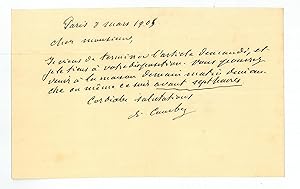 Paris 7 mars 1905
cher monsieur,
Je viens de terminer l'article demandé, et
je le tiens à votre disposition. Vous pouvez
venir à la maison demain matin diman
che ou même ce soir avant sept heures
Cordiales salutations